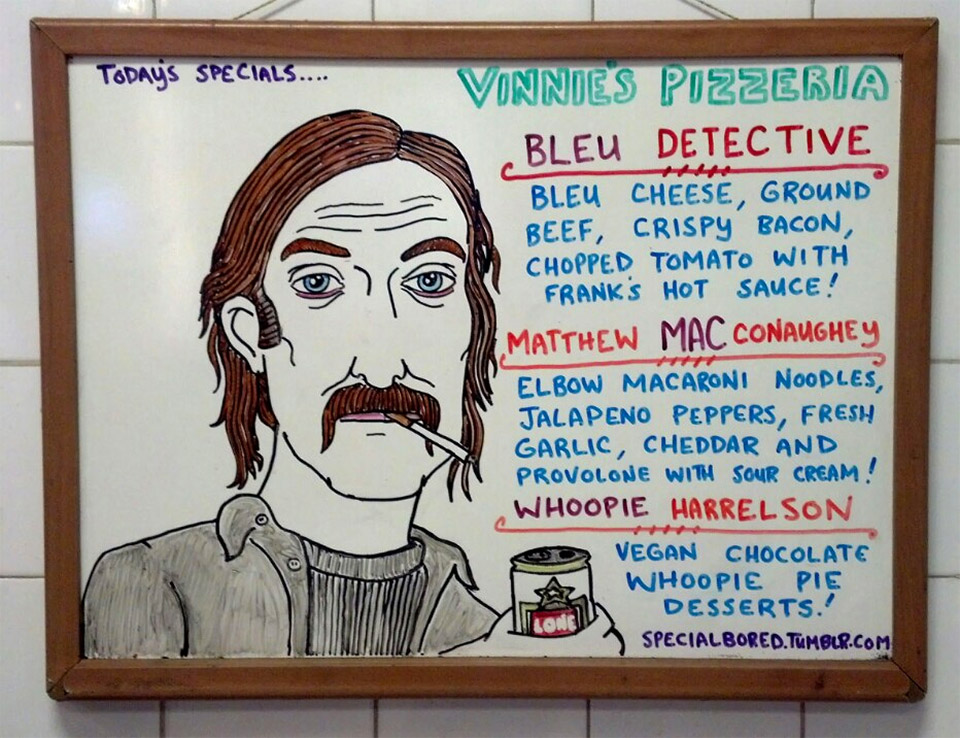 TODAY'S SPECIALS....
VINNIE'S PIZZERIA
BLEU DETECTIVE
BLEU CHEESE, GROUND
BEEF, CRISPY BACON,
CHOPPED TOMATO WITH
FRANK'S HOT SAUCE!
MATTHEW MAC CONAUGHEY
ELBOW MACARONI NOODLES,
JALAPENO PEPPERS, FRESH
GARLIC, CHEDDAR AND
PROVOLONE WITH SOUR CREAM!
WHOOPIE HARRELSON
VEGAN CHOCOLATE
WHOOPIE PIE
DESSERTS!
LONE
SPECIALBORED.TUMBLR.COM